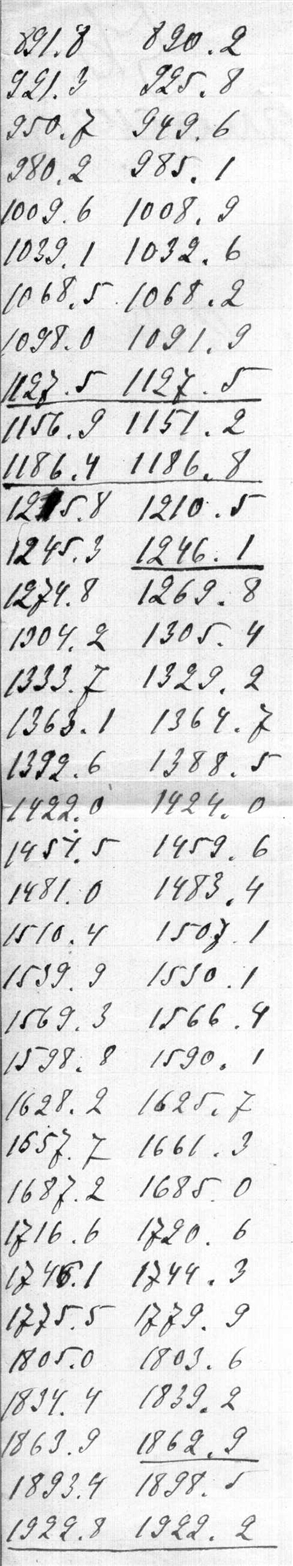 891.8 890.2
921.3 925.8
950.7 949.6
980.2 985.1
1009.6 1008.9
1039.1 1032.6
1068.5 1068.2
1098.0 1091.9
1127.5 1127.5
1156.9 1151.2
1186.4 1186.8
1215.8 1210.5
1245.3 1246.1
1274.8 1269.8
1304.2 1305.4
1333.7 1329.2
1363.1 1364.7
1392.6 1388.5
1422.0 1424.0
1451.5 1459.6
1481.0 1483.4
1510.4 1507.1
1539.9 1530.1
1569.3 1566.4
1598.8 1590.1
1628.2 1625.7
1657.7 1661.3
1687.2 1685.0
1716.6 1720.6
1746.1 1744.3
1775.5 1779.9
1805.0 1803.6
1834.4 1839.2
1863.9 1862.9
1893.4 1898.5
1922.8 1922.2